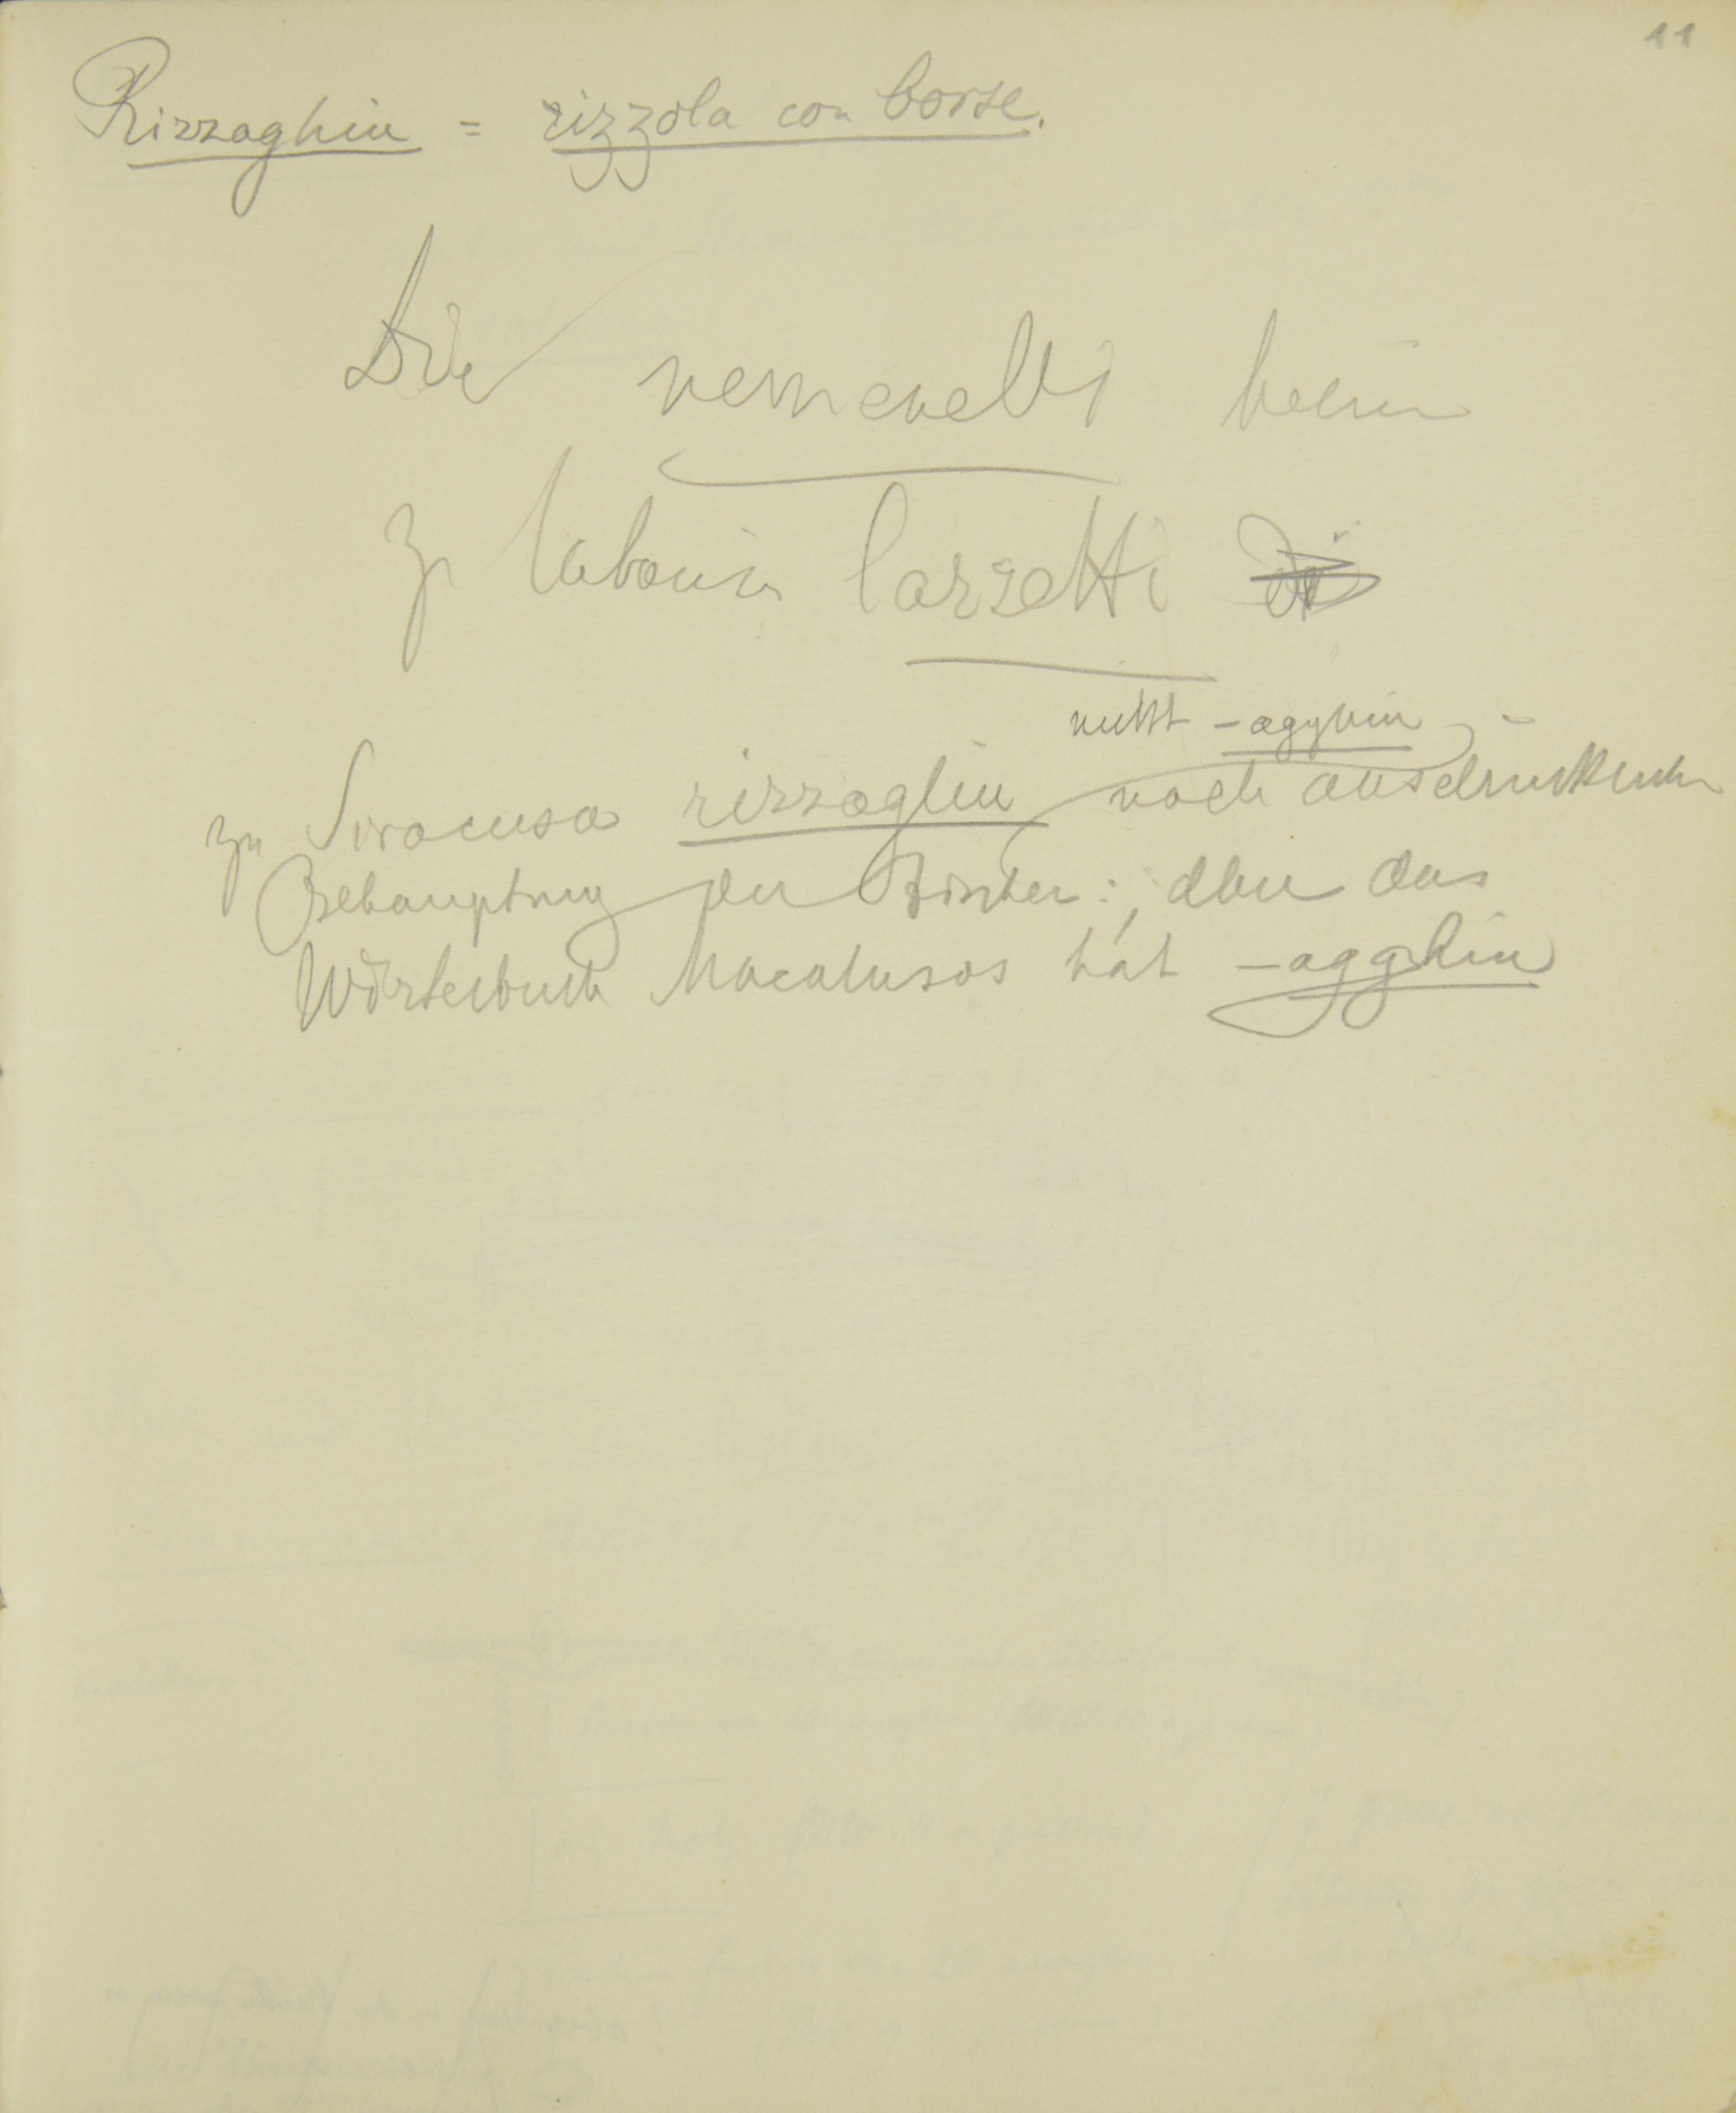 11
Rizzaghiu = rizzola con borse.
Die nemenelli heissen
zu Catania larzetti
nicht -agghiu
zu Siracusa rizzagliu nach ausdrücklicher
Behauptung der Fischer; aber das
Wörterbuch Macalusos hat -agghiu